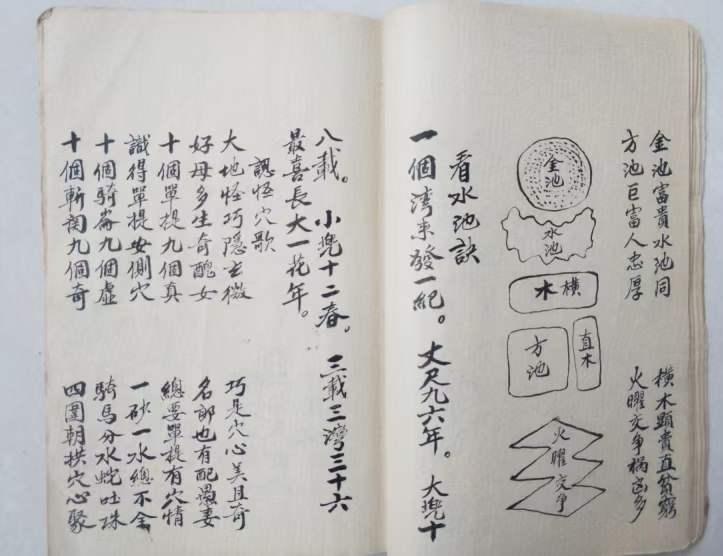 金池富貴水池同　橫木顯貴直貧窮
方池巨富人忠厚　火曜交爭禍害多
金池
水池
橫木
方池
直木
火曜交爭
看水池訣
一個灣來發一紀。丈尺九六年。大兜十
八載。小兜十二春。三載三灣三十六
最喜長大一花年。
認怪穴歌
大地怪巧隱玄微　巧是穴心美且奇
好母多生奇醜女　名郎也有配愚妻
十個單提九個真　總要單提有穴情
識得單提女側穴　一砂一水總不
十個騎崙九個虛　騎馬分水蛇吐珠
十個斬関九個奇　四圍朝拱穴心聚